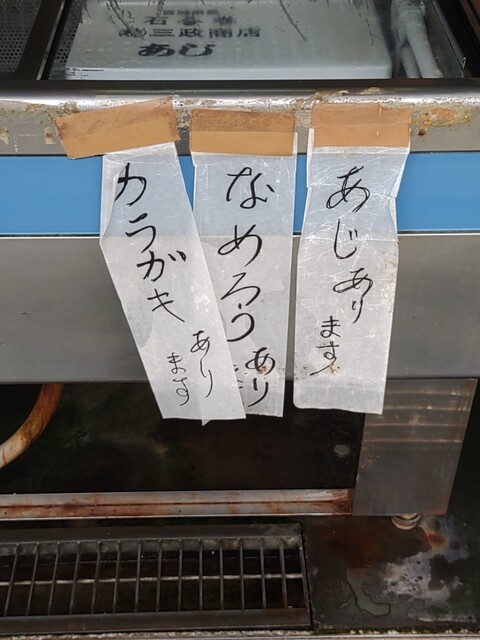 石な巻
㈱三政商店
あじ
あじあり
ます
なめろう
あり
カラガキ
あり
ます